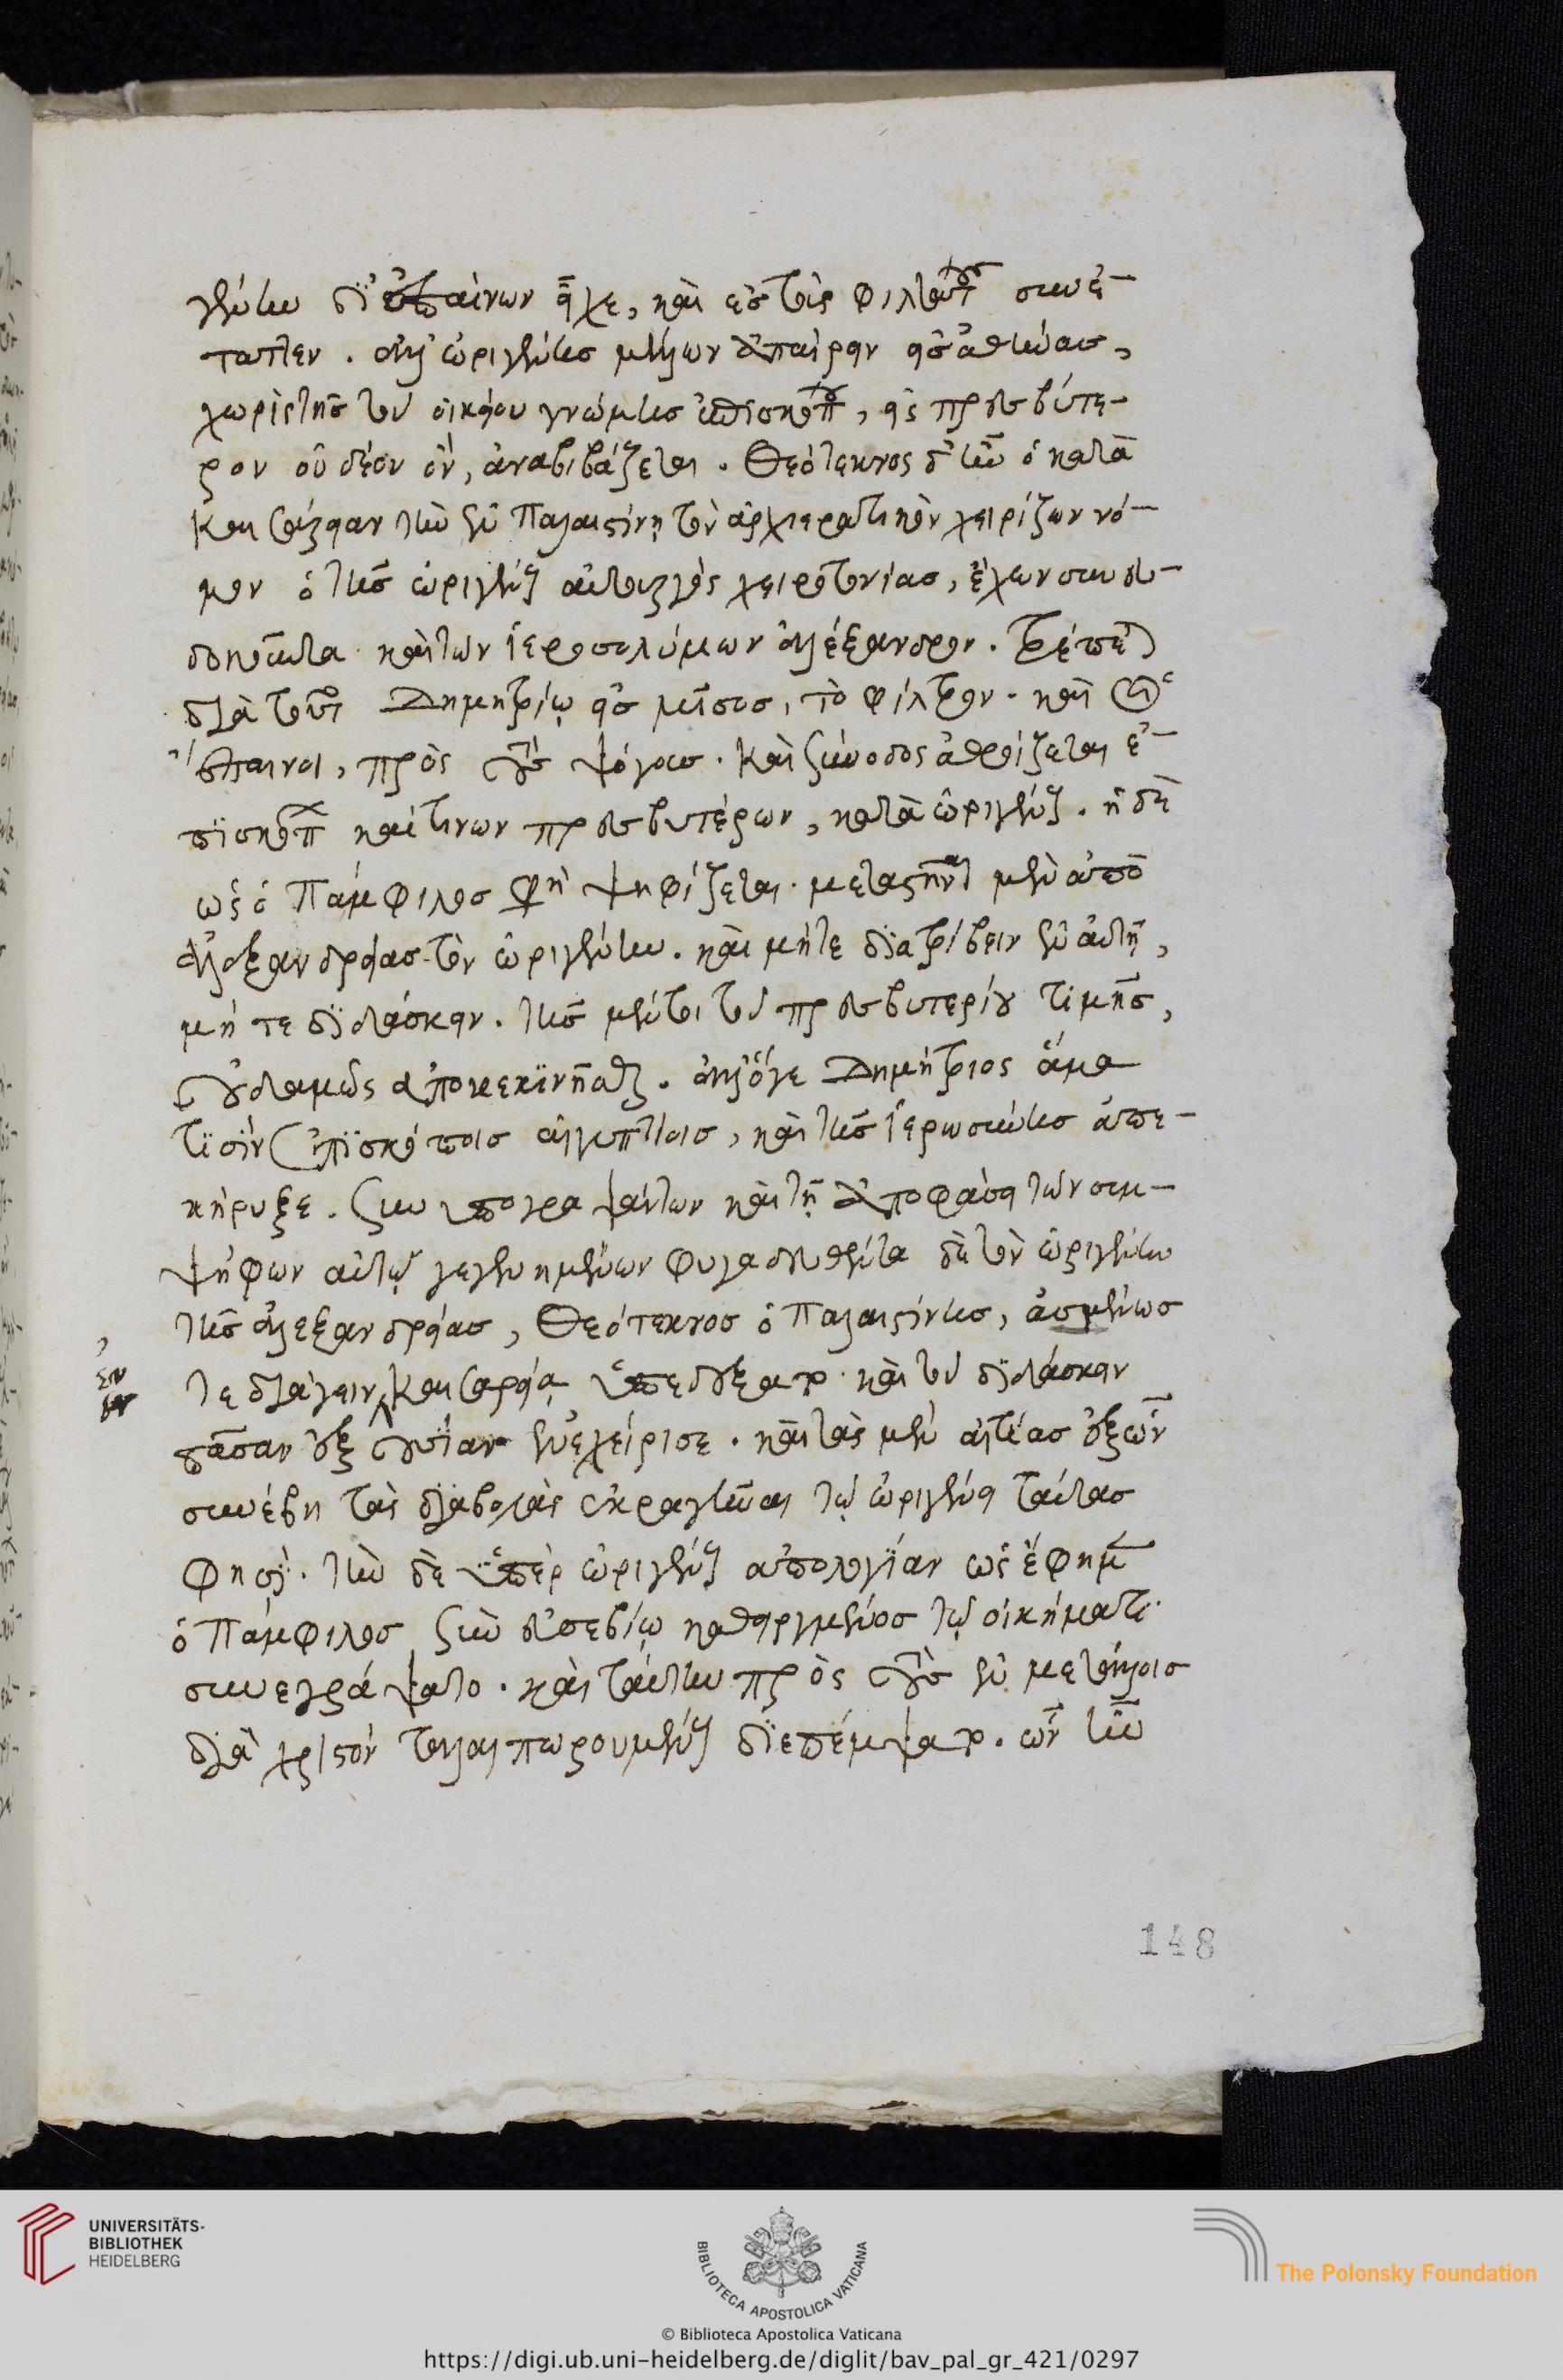 γένην δι' ἐπαίνων εἶχε, καὶ εἰς τοὺς φιλτάτους συνέ-
ταττεν. ἀλλ' ὠριγένης μέλλων ἀπαίρειν εἰς ἀθήνας,
χωρὶς τῆς τοῦ οἰκείου γνώμης ἐπισκόπου, εἰς πρεσβύτε-
ρον οὐ δέον ὂν, ἀναβιβάζεται. Θεότεκνος δ' ἦν ὁ κατὰ
Καισάρειαν τὴν ἐν Παλαιστίνῃ τὸν ἀρχιερατικὸν χειρίζων νό-
μον ὁ τῆς ὠριγένους αὐτουργὸς χειροτονίας, ἔχων συνευ-
δοκοῦντα καὶ τῶν ἱεροσολύμων ἀλέξανδρον. τρέπει
διὰ τοῦτο Δημητρίῳ εἰς μῖσος, τὸ φίλτρον. καὶ οἱ
ἔπαινοι, πρὸς τοὺς ψόγους. Καὶ σύνοδος ἀθροίζεται ἐ-
πισκόπων καί τινων πρεσβυτέρων, κατὰ ὠριγένους. ἡ δὲ
ὡς ὁ Πάμφιλος φησὶ ψηφίζεται. μεταστῆναι μὲν ἀπὸ
ἀλεξανδρείας τὸν ὠριγένην. καὶ μήτε διατρίβειν ἐν αὐτῇ,
μή τε διδάσκειν. τῆς μέντοι τοῦ πρεσβυτερίου τιμῆς,
οὐδαμῶς ἀποκεκινῆσθαι. ἀλλ' ὅγε Δημήτριος ἅμα
τισὶν ἐπισκόποις αἰγυπτίοις, καὶ τῆς ἱερωσύνης ἀπε-
κήρυξε. συνυπογραψάντων καὶ τῇ ἀποφάσει τῶν συμ-
ψήφων αὐτῷ γεγενημένων φυγαδευθέντα δὲ τὸν ὠριγένην
τῆς ἀλεξανδρείας, Θεότεκνος ὁ Παλαιστίνης, ἀσμένως
τε διάγειν Καισαρείᾳ ὑπεδέξατο. καὶ τοῦ διδάσκειν
πᾶσαν ἐξουσίαν ἐνεχείρισε. καὶ τὰς μὲν αἰτίας ἐξ ὧν
συνέβη τὰς διαβολὰς ἐκραγῆναι τῷ ὠριγένει ταύτας
φησί. τὴν δὲ ὑπὲρ ὠριγένους ἀπολογίαν ὡς ἔφημεν
ὁ Πάμφιλος σὺν εὐσεβίῳ καθειργμένος τῷ οἰκήματι
συνεγράψατο. καὶ ταύτην πρὸς τοὺς ἐν μετάλλοις
διὰ χριστὸν ταλαιπωρουμένους διεπέμψατο. ὧν ἦν
148
UNIVERSITÄTS-
BIBLIOTHEK
HEIDELBERG
BIBLIOTECA APOSTOLICA VATICANA
The Polonsky Foundation
© Biblioteca Apostolica Vaticana
https://digi.ub.uni-heidelberg.de/diglit/bav_pal_gr_421/0297